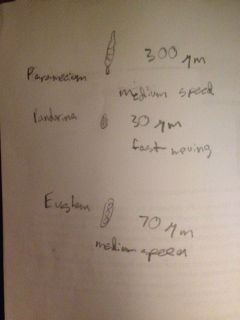 300 μm
Paramecium
medium speed
Pandorina 30 μm
fast moving
Euglena
70 μm
medium speed